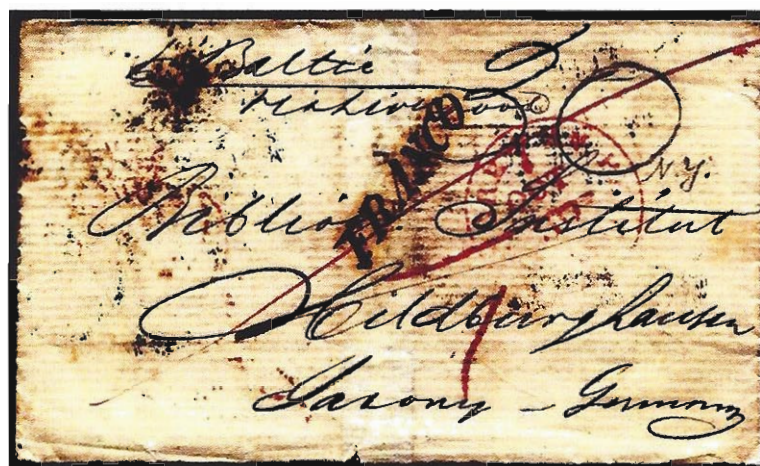 Baltic
via Liverpool
FRANCO
N.Y.
Biblio. Institut
Hildburghausen
Saxony - Germany